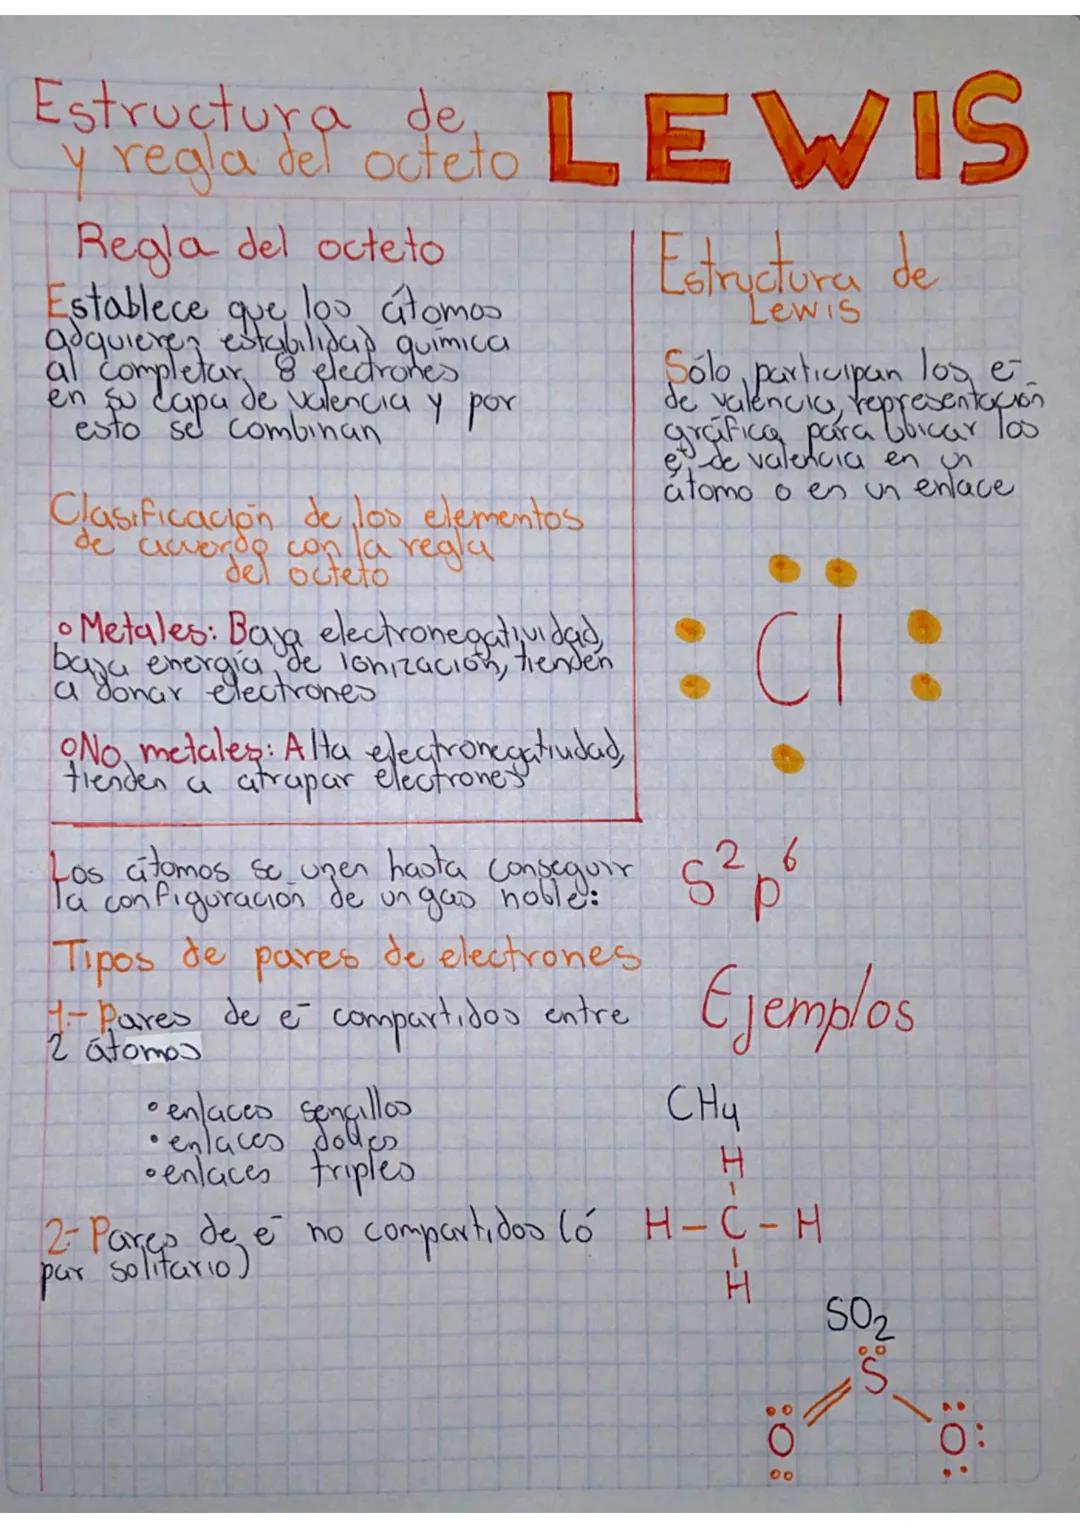 Estructura de LEWIS
y regla del octeto
Regla del octeto
Establece que los átomos
adquieren estabilidad química
al completar 8 electrones
en su capa de valencia y por
esto se combinan
Clasificación de los elementos
de acuerdo con la regla
del octeto
• Metales: Baja electronegatividad,
baja energía de ionización, tienden
a donar electrones
• No metales: Alta electronegatiudad,
tienden a atrapar electrones
Estructura de
Lewis
Sólo participan los e-
de valencia, representación
gráfica para ubicar los
e- de valencia en un
átomo o en un enlace
Cl
Los átomos se unen hasta conseguir
la configuración de un gas noble:
S² p⁶
Tipos de pares de electrones
1.- Pares de e- compartidos entre
2 átomos
• enlaces sencillos
• enlaces dobles
• enlaces triples
2- Pares de e- no compartidos (ó
par solitario)
Ejemplos
CH4
H
H - C - H
H
SO2
S
O O